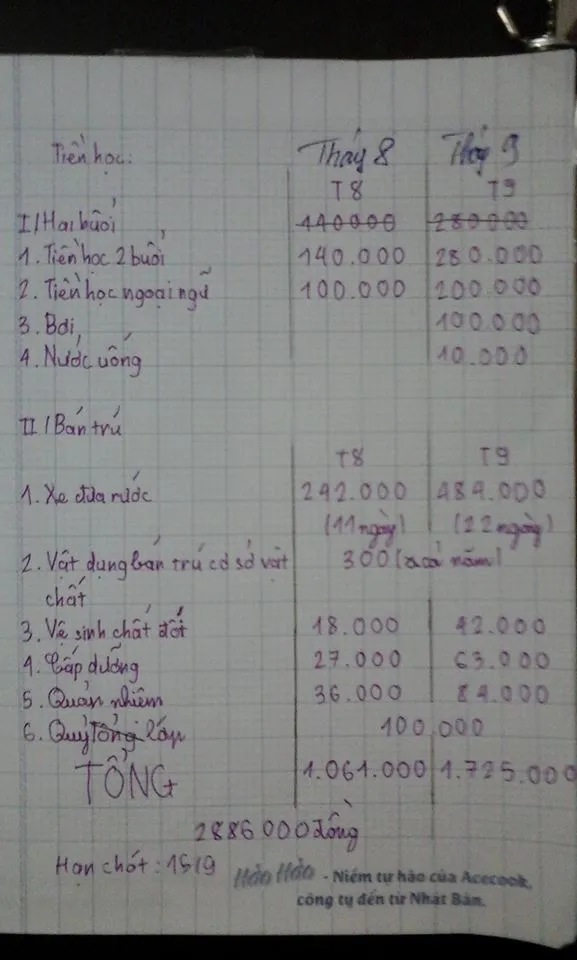 Tiền học: Tháng 8 Tháng 9
T8 T9
I/ Hai buổi 140000 280000
1. Tiền học 2 buổi 140.000 280.000
2. Tiền học ngoại ngữ 100.000 200.000
3. Bơi 100.000
4. Nước uống 10.000
II/ Bán trú
T8 T9
1. Xe đưa rước 242.000 484.000
(11 ngày) (22 ngày)
2. Vật dụng bán trú cơ sở vật 300 (cả năm)
chất
3. Vệ sinh chất đốt 18.000 42.000
4. Cấp dưỡng 27.000 63.000
5. Quản nhiệm 36.000 84.000
6. Quỹ lớp 100.000
TỔNG 1.061.000 1.725.000
2886000 đồng
Hạn chót: 15/9 Hảo Hảo - Niềm tự hào của Acecook,
công ty đến từ Nhật Bản.